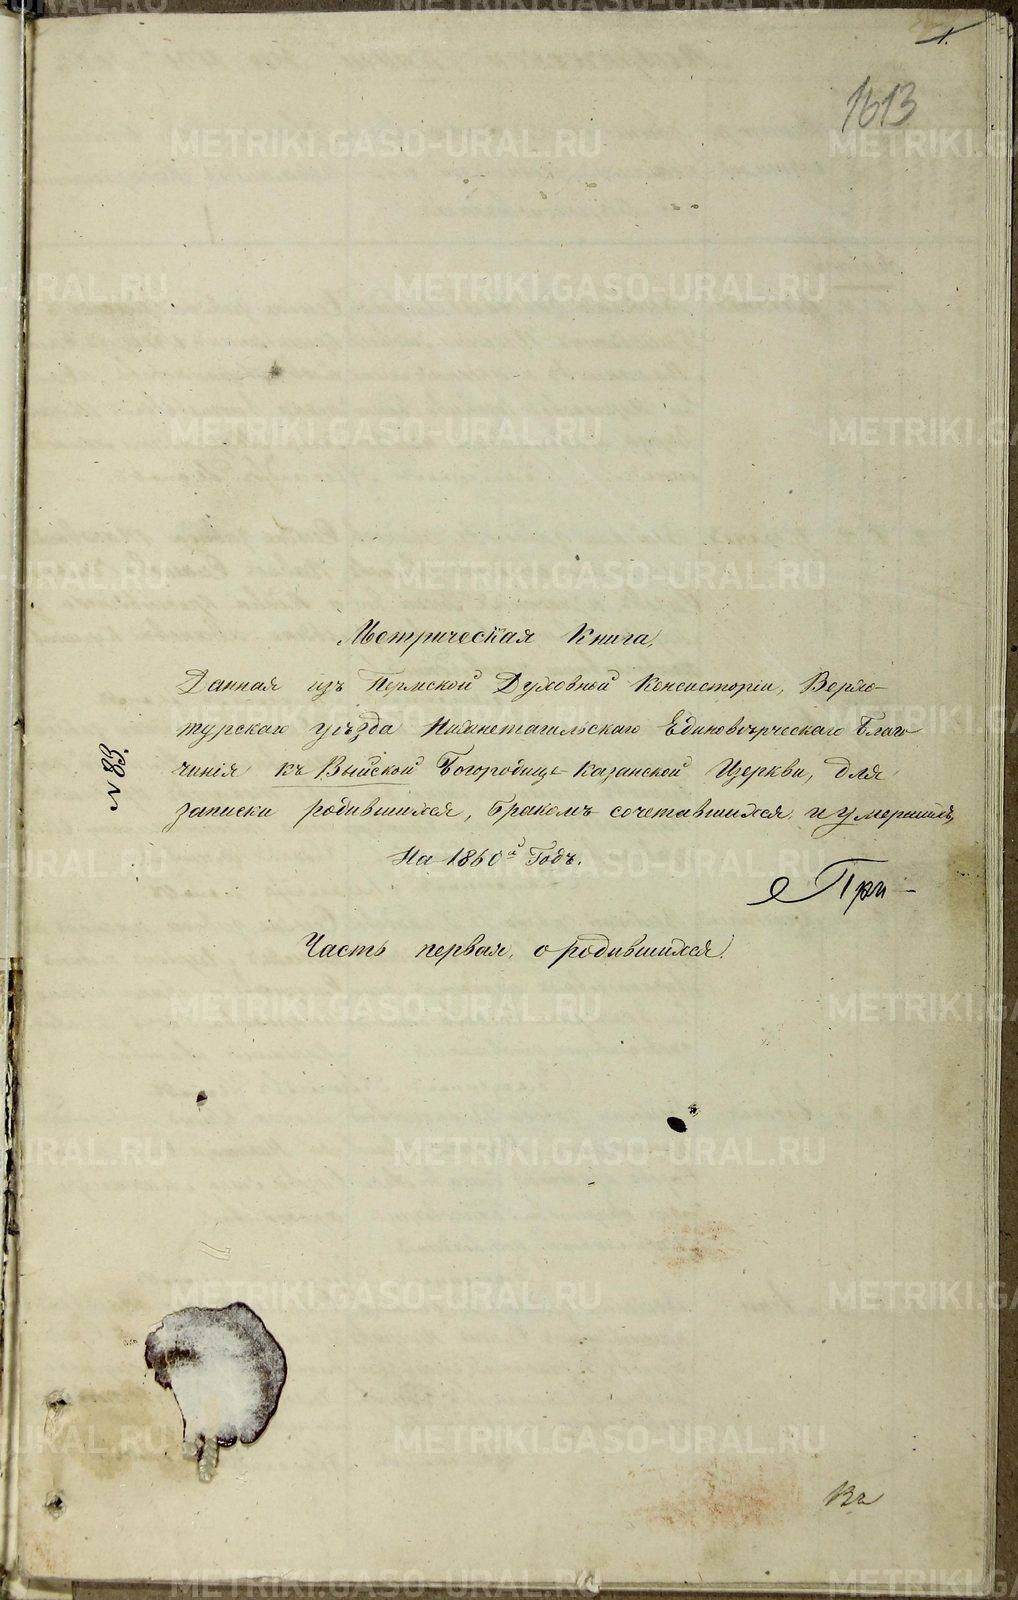 1.
1613
Метрическая Книга,
Данная изъ Пермской Духовной Консисторіи, Верхо-
турскаго уѣзда Нижнетагильскаго Единовѣрческаго Благо
чинія къ Выйской Богородице-Казанской Церкви, для
записки родившихся, бракомъ сочетавшихся, и умершихъ,
На 1860й Годъ.
При-
Часть первая, о родившихся.
N 83.
METRIKI.GASO-URAL.RU